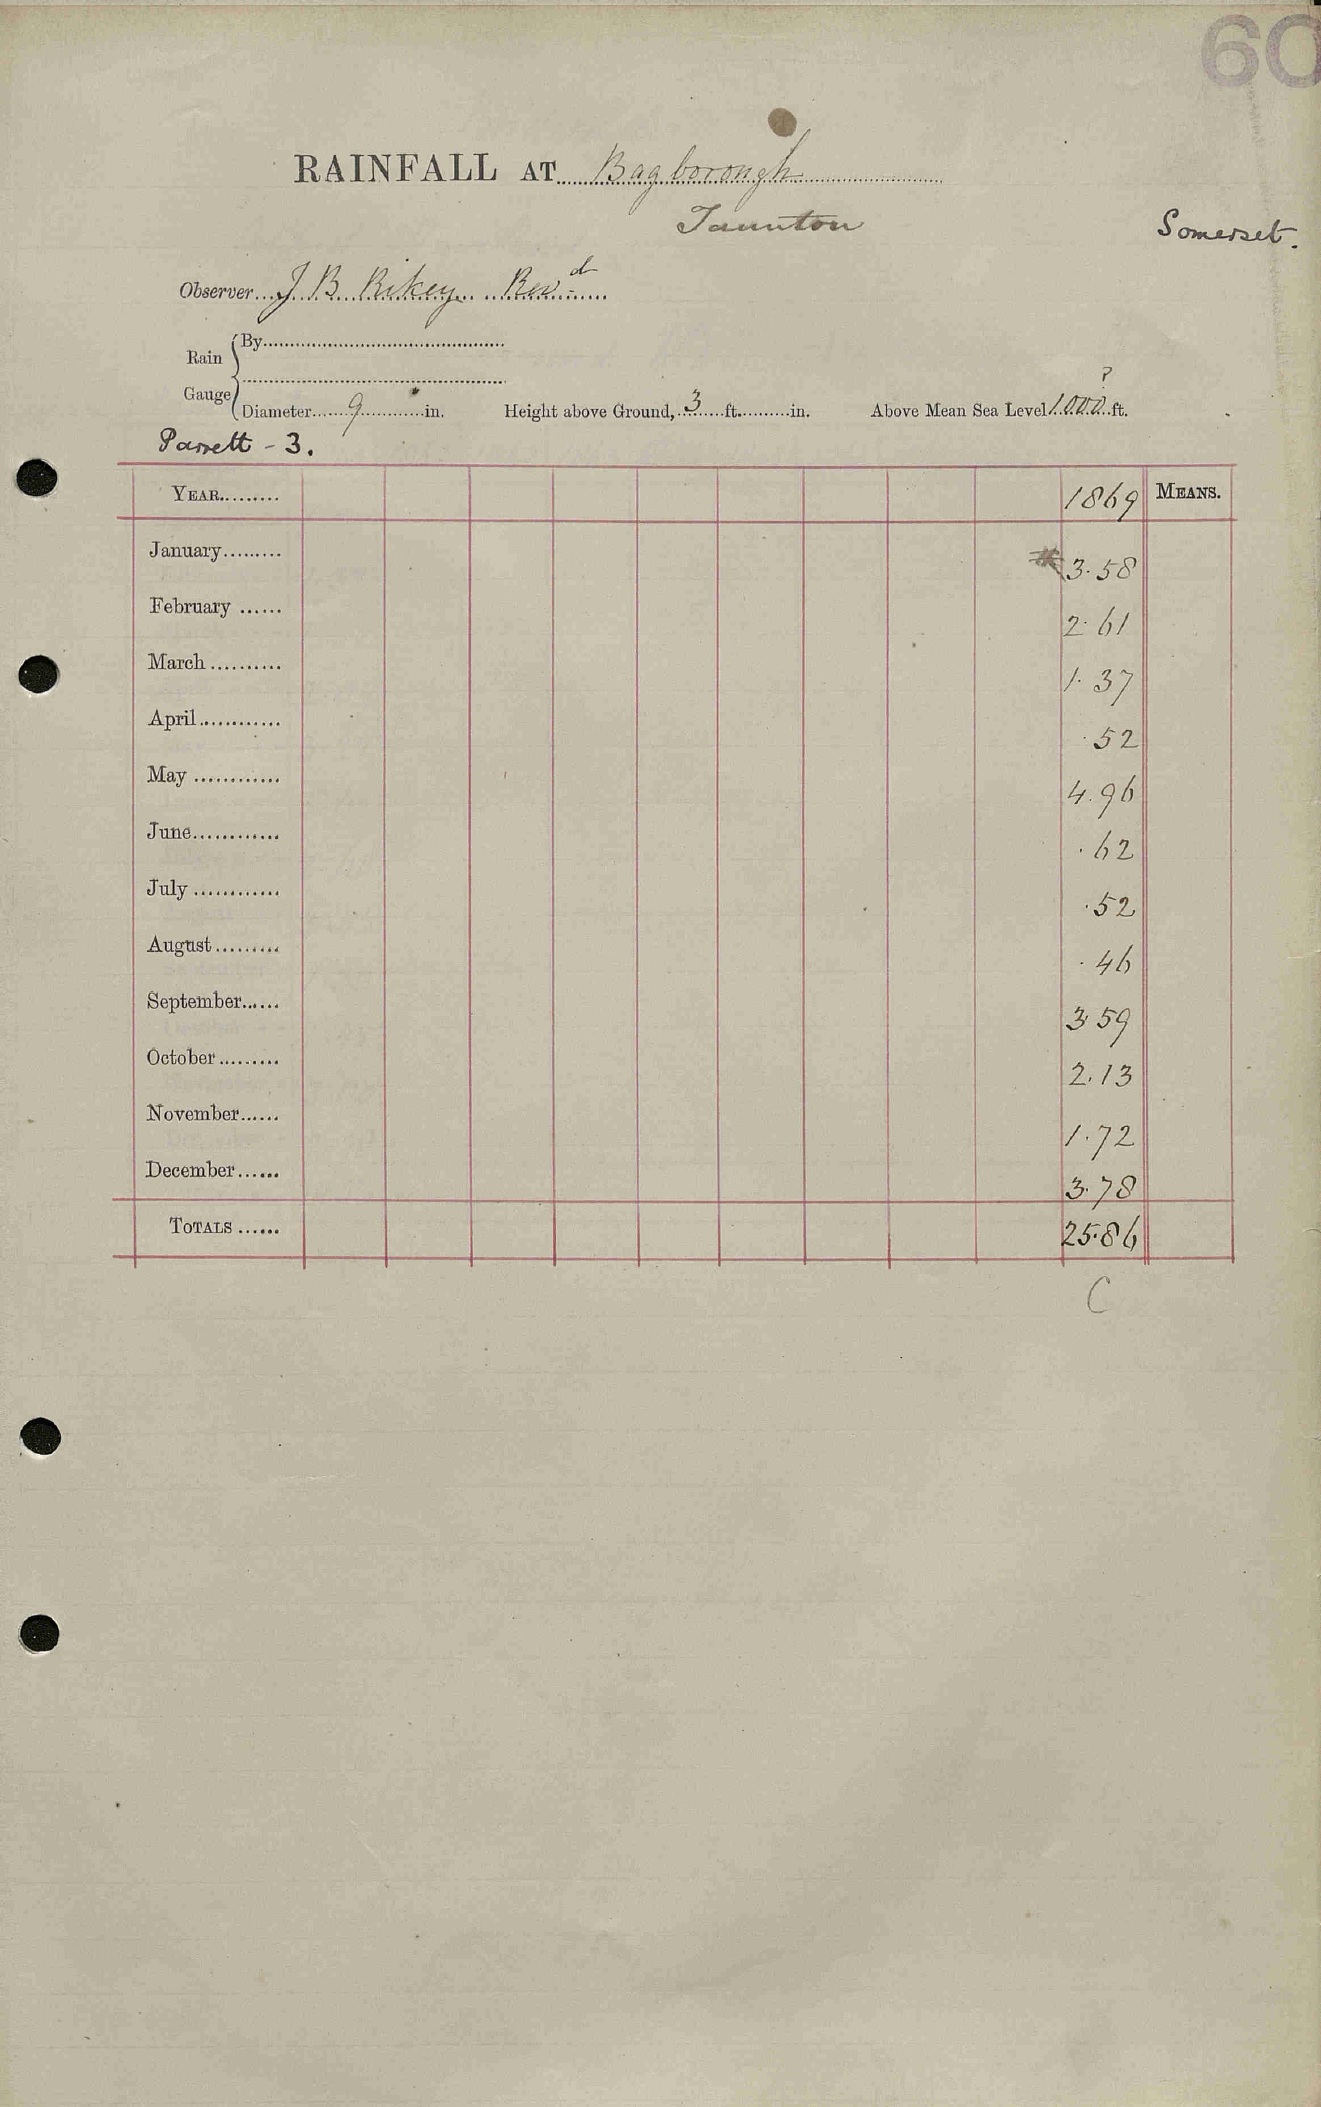 60
RAINFALL AT Bagborough
Taunton
Somerset.
Observer J B Rikey Revd
Rain Gauge
By
?
Diameter 9 in. Height above Ground, 3 ft. in. Above Mean Sea Level 1000 ft.
Parrett - 3.
YEAR 1869 MEANS.
January 3.58
February 2.61
March 1.37
April .52
May 4.96
June .62
July .52
August .46
September 3.59
October 2.13
November 1.72
December 3.78
TOTALS 25.86
C